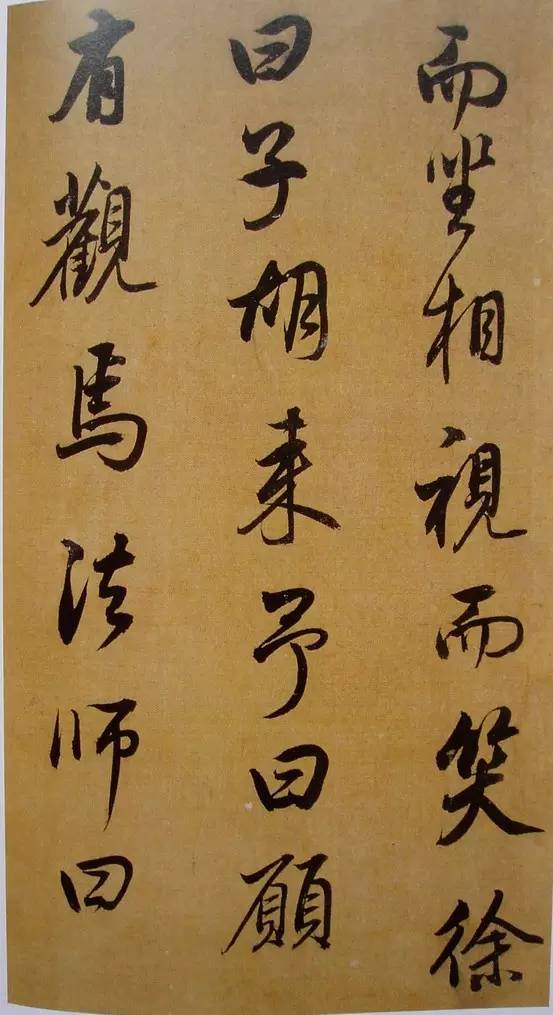 而坐相視而笑徐
曰子胡来予曰願
有觀焉法师曰